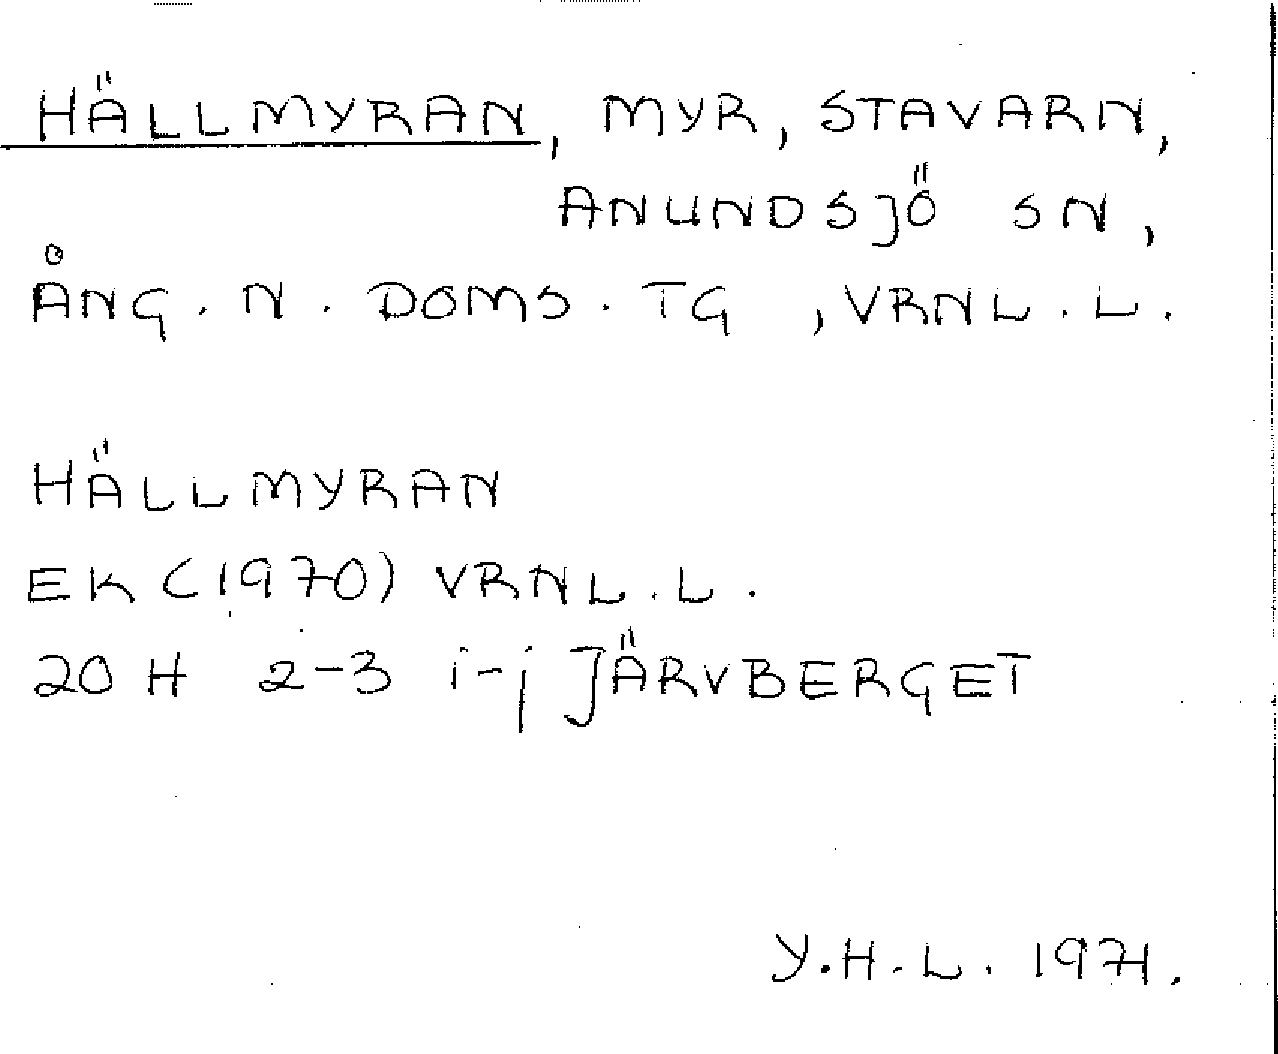 HÄLLMYRAN, MYR, STAVARN,
ANUNDSJÖ SN,
ÅNG. N. DOMS. TG, VRNL. L.
HÄLLMYRAN
EK (1970) VRNL. L.
20 H 2-3 i-j JÄRVBERGET
Y.H.L. 1971.